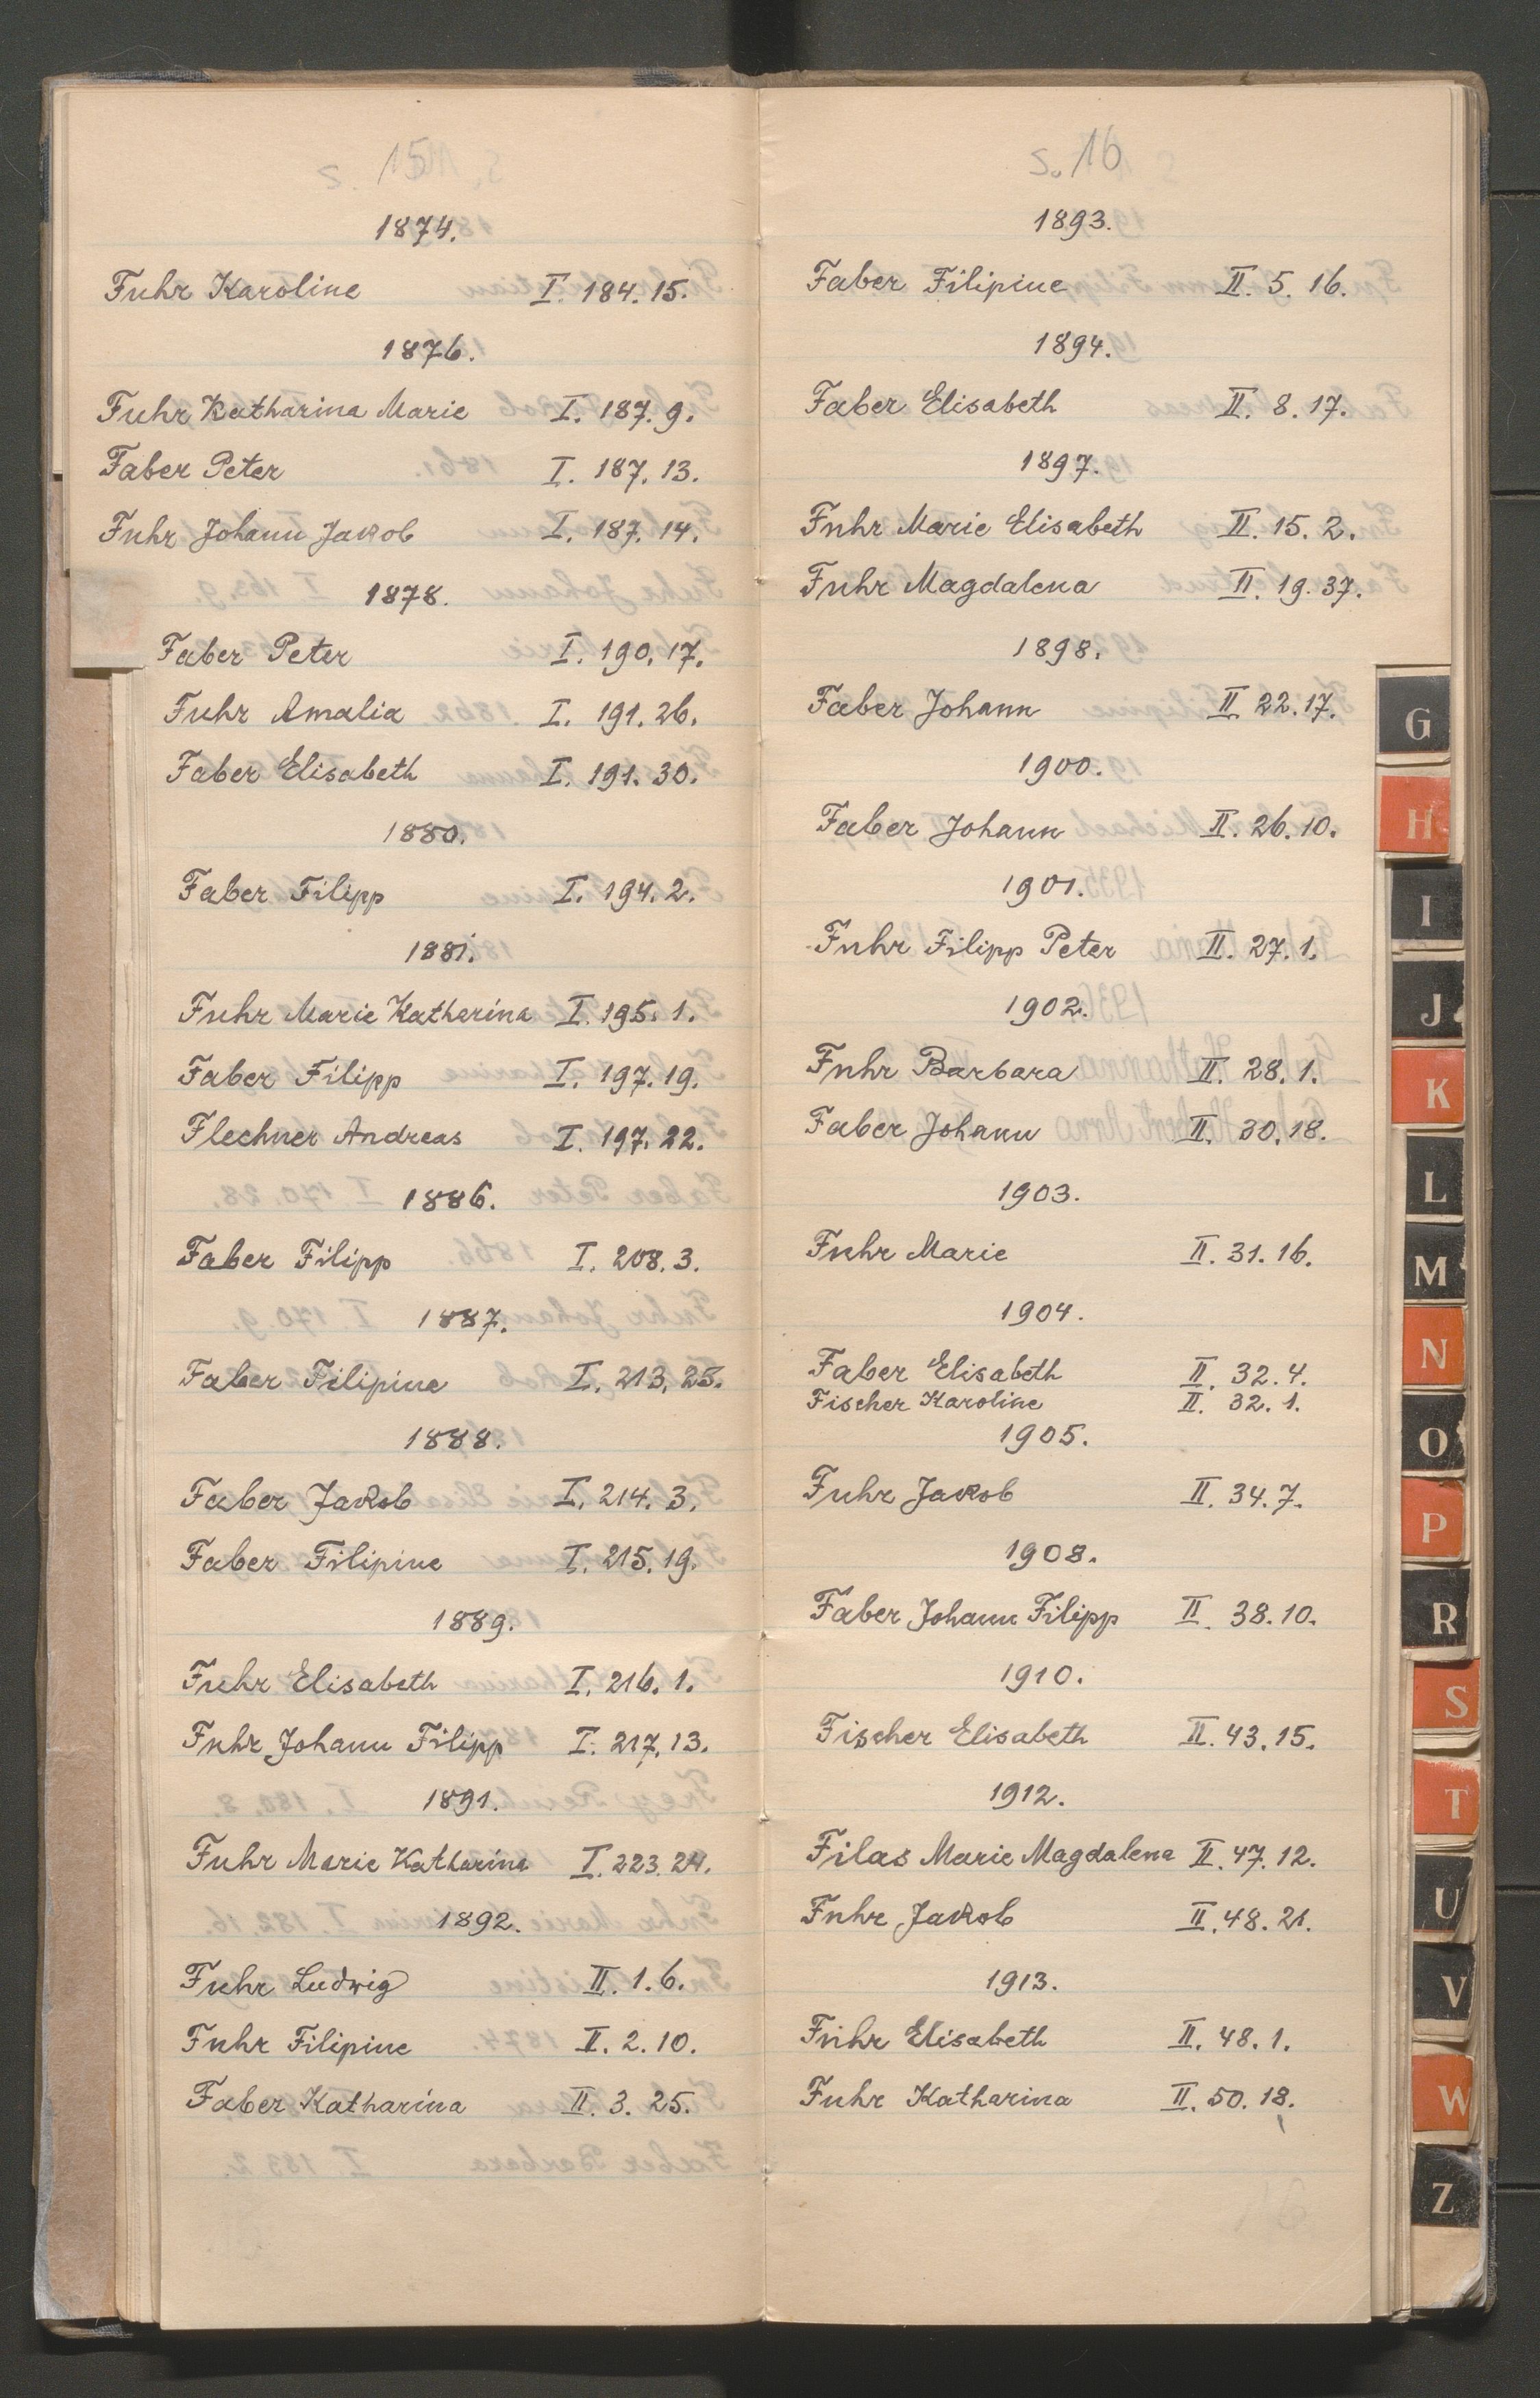 s. 15
1874.
Fuhr Karoline I. 184. 15.
1876.
Fuhr Katharina Marie I. 187. 9.
Faber Peter I. 187. 13.
Fuhr Johann Jakob I. 187. 14.
1878.
Faber Peter I. 190. 17.
Fuhr Amalia I. 191. 26.
Faber Elisabeth I. 191. 30.
1880.
Faber Filipp I. 194. 2.
1881.
Fuhr Marie Katharina I. 195. 1.
Faber Filipp I. 197. 19.
Flechner Andreas I. 197. 22.
1886.
Faber Filipp I. 208. 3.
1887.
Faber Filipine I. 213. 23.
1888.
Faber Jakob I. 214. 3.
Faber Filipine I. 215. 19.
1889.
Fuhr Elisabeth I. 216. 1.
Fuhr Johann Filipp I. 217. 13.
1891.
Fuhr Marie Katharina I. 223. 24.
1892.
Fuhr Ludwig II. 1. 6.
Fuhr Filipine II. 2. 10.
Faber Katharina II. 3. 25.
s. 16
1893.
Faber Filipine II. 5. 16.
1894.
Faber Elisabeth II. 8. 17.
1897.
Fuhr Marie Elisabeth II. 15. 2.
Fuhr Magdalena II. 19. 37.
1898.
Faber Johann II 22. 17.
1900.
Faber Johann II. 26. 10.
1901.
Fuhr Filipp Peter II. 27. 1.
1902.
Fuhr Barbara II. 28. 1.
Faber Johann II. 30. 18.
1903.
Fuhr Marie II. 31. 16.
1904.
Faber Elisabeth II. 32. 4.
Fischer Karoline II. 32. 1.
1905.
Fuhr Jakob II. 34. 7.
1908.
Faber Johann Filipp II. 38. 10.
1910.
Fischer Elisabeth II. 43. 15.
1912.
Filas Marie Magdalena II. 47. 12.
Fuhr Jakob II. 48. 21.
1913.
Fuhr Elisabeth II. 48. 1.
Fuhr Katharina II. 50. 18.
G
H
I
J
K
L
M
N
O
P
R
S
T
U
V
W
Z